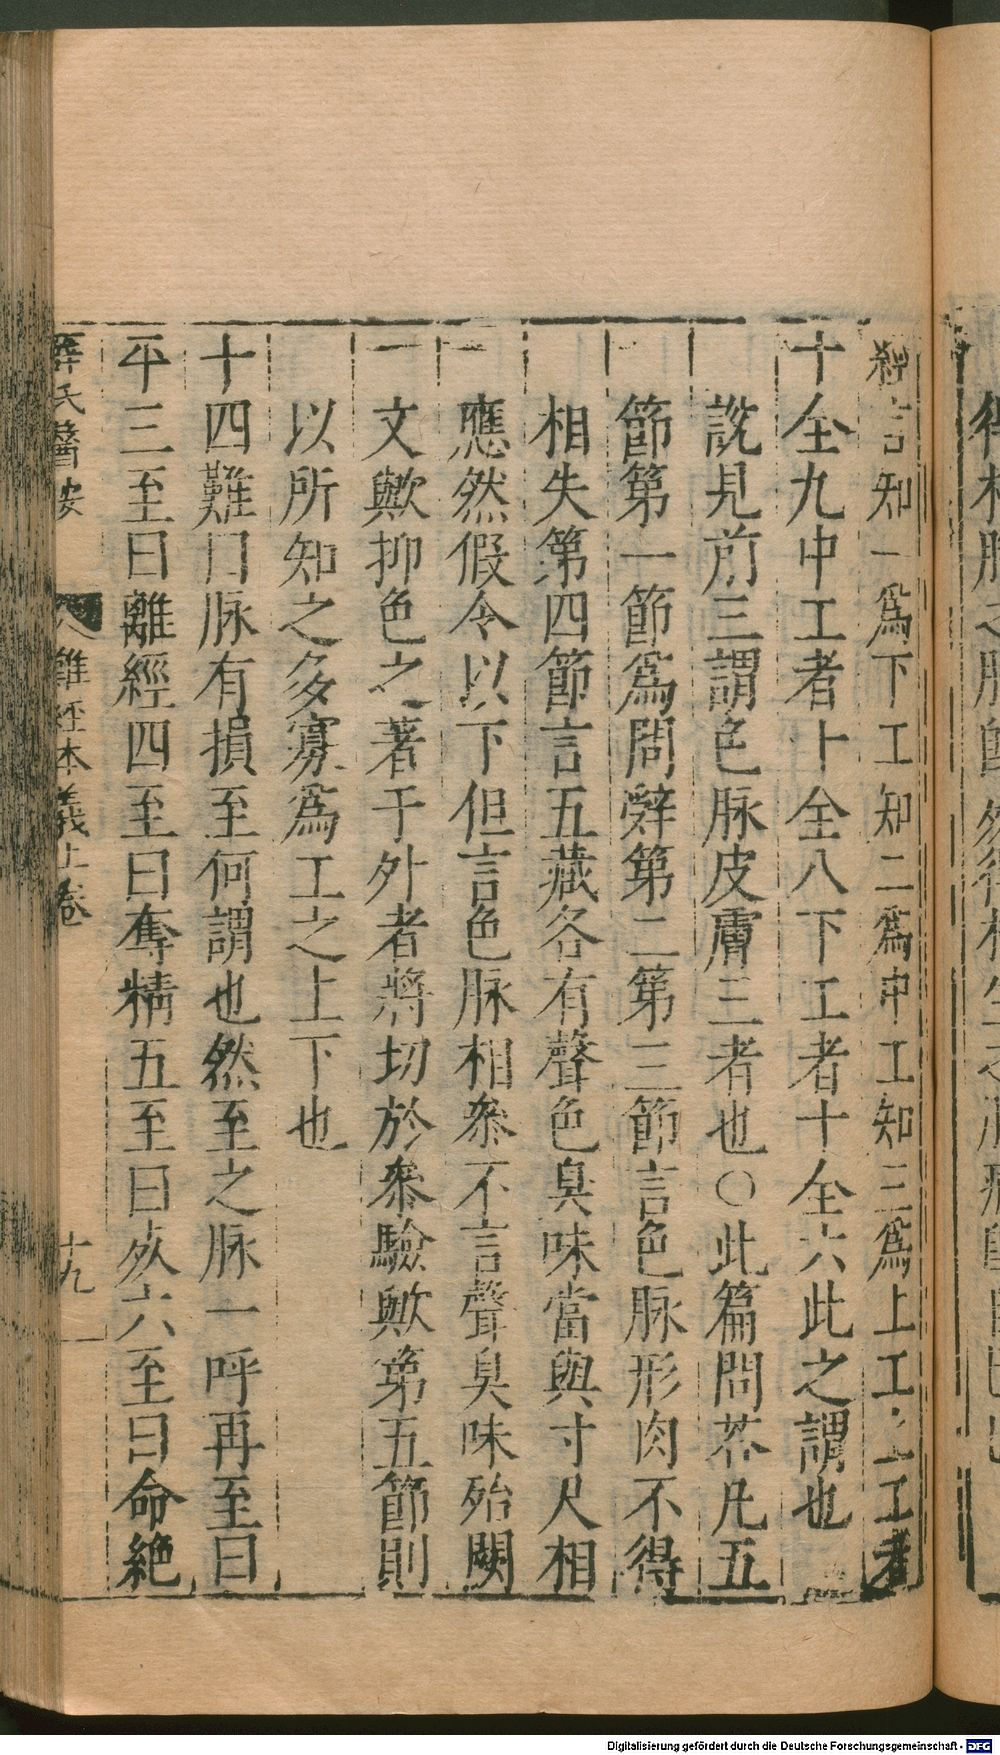 經言知一爲下工知二爲中工知三爲上工上工者
十全九中工者十全八下工者十全六此之謂也
說見前三謂色脉皮膚三者也〇此篇問荅凡五
節第一節爲問辭第二第三節言色脉形肉不得
相失第四節言五藏各有聲色臭味當與寸尺相
應然假令以下但言色脉相叅不言聲臭味殆闕
文歟抑色之著于外者將切於叅驗歟第五節則
以所知之多寡爲工之上下也
十四難曰脉有損至何謂也然至之脉一呼再至曰
平三至曰離經四至曰奪精五至曰死六至曰命絕
薛氏醫按 難經本義上卷 十九
Digitalisierung gefördert durch die Deutsche Forschungsgemeinschaft - DFG